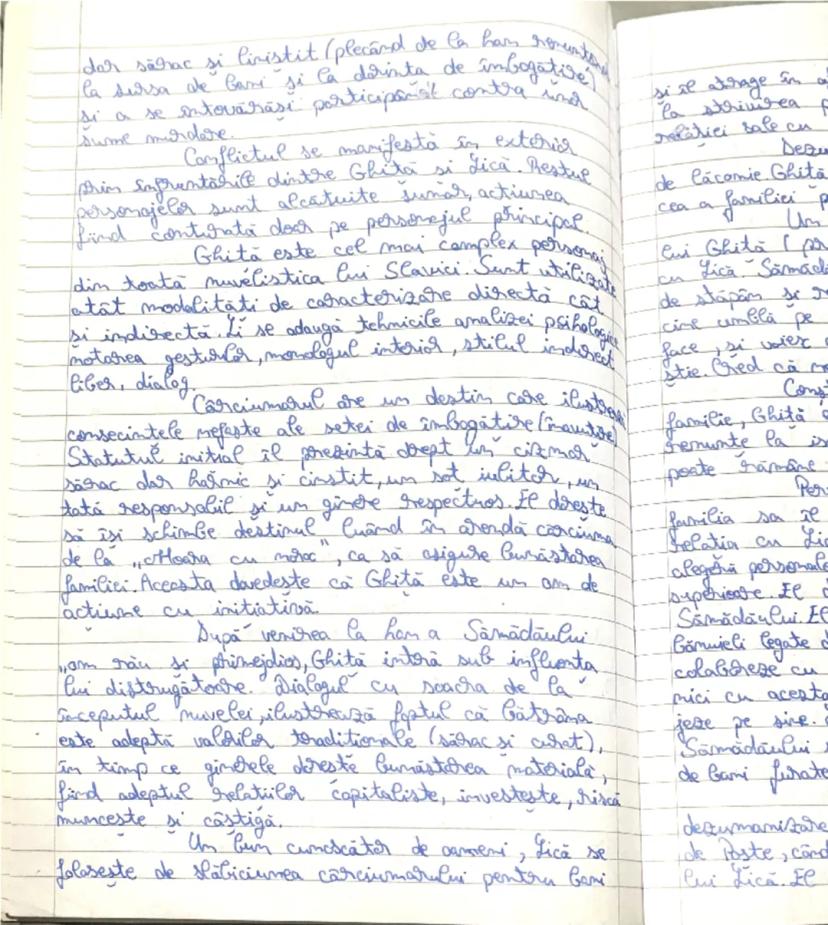 dar sărac și liniștit (plecând de la han renunțând
la sursa de bani și la dorința de îmbogățire)
și a se întovărăși participând contra unor
sume murdare.
Conflictul se manifestă în exterior
prin înfruntările dintre Ghiță și Lică. Restul
personajelor sunt alcătuite sumar, acțiunea
fiind conturată doar pe personajul principal.
Ghiță este cel mai complex personaj
din toată nuvelistica lui Slavici. Sunt utilizate
atât modalități de caracterizare directă cât
și indirectă. Li se adaugă tehnicile analizei psihologice
notarea gesturilor, monologul interior, stilul indirect
liber, dialog.
Cârciumarul are un destin care ilustrează
consecințele nefaste ale setei de îmbogățire (înavuțire)
Statutul inițial îl prezintă drept un cizmar
sărac dar harnic și cinstit, un soț iubitor, un
tată responsabil și un ginere respectuos. El dorește
să își schimbe destinul luând în arendă cârciuma
de la „Moara cu noroc", ca să asigure bunăstarea
familiei. Aceasta dovedește că Ghiță este un om de
acțiune cu inițiativă.
După venirea la han a Sămădăului
„om rău și primejdios, Ghiță intră sub influența
lui distrugătoare. Dialogul cu soacra de la
începutul nuvelei, ilustrează faptul că bătrâna
este adeptă valorilor tradiționale (sărac și curat),
în timp ce ginerele dorește bunăstarea materială,
fiind adeptul relațiilor capitaliste, investește, riscă
muncește și câștigă.
Un bun cunoscător de oameni, Lică se
folosește de slăbiciunea cârciumarului pentru bani
și îl atrage în
la strivirea
relației sale cu
de lăcomie Ghiță
cea a familiei
Un
lui Ghiță
cu Lică. Sămăd
de stăpân și
cine umblă pe
face, și vaiex
știe. Cred că
Cons
familie, Ghiță
renunțe la
poate rămâne
Per
familia sa îl
relația cu Lic
alegeră personale
superioare. El
Sămădăului. El
bănuieli legate
colaboreze cu
mici cu acesta
jeze pe sine.
Sămădăului
de bani furate
dezumanizare
de Paște, când
lui Lică. El